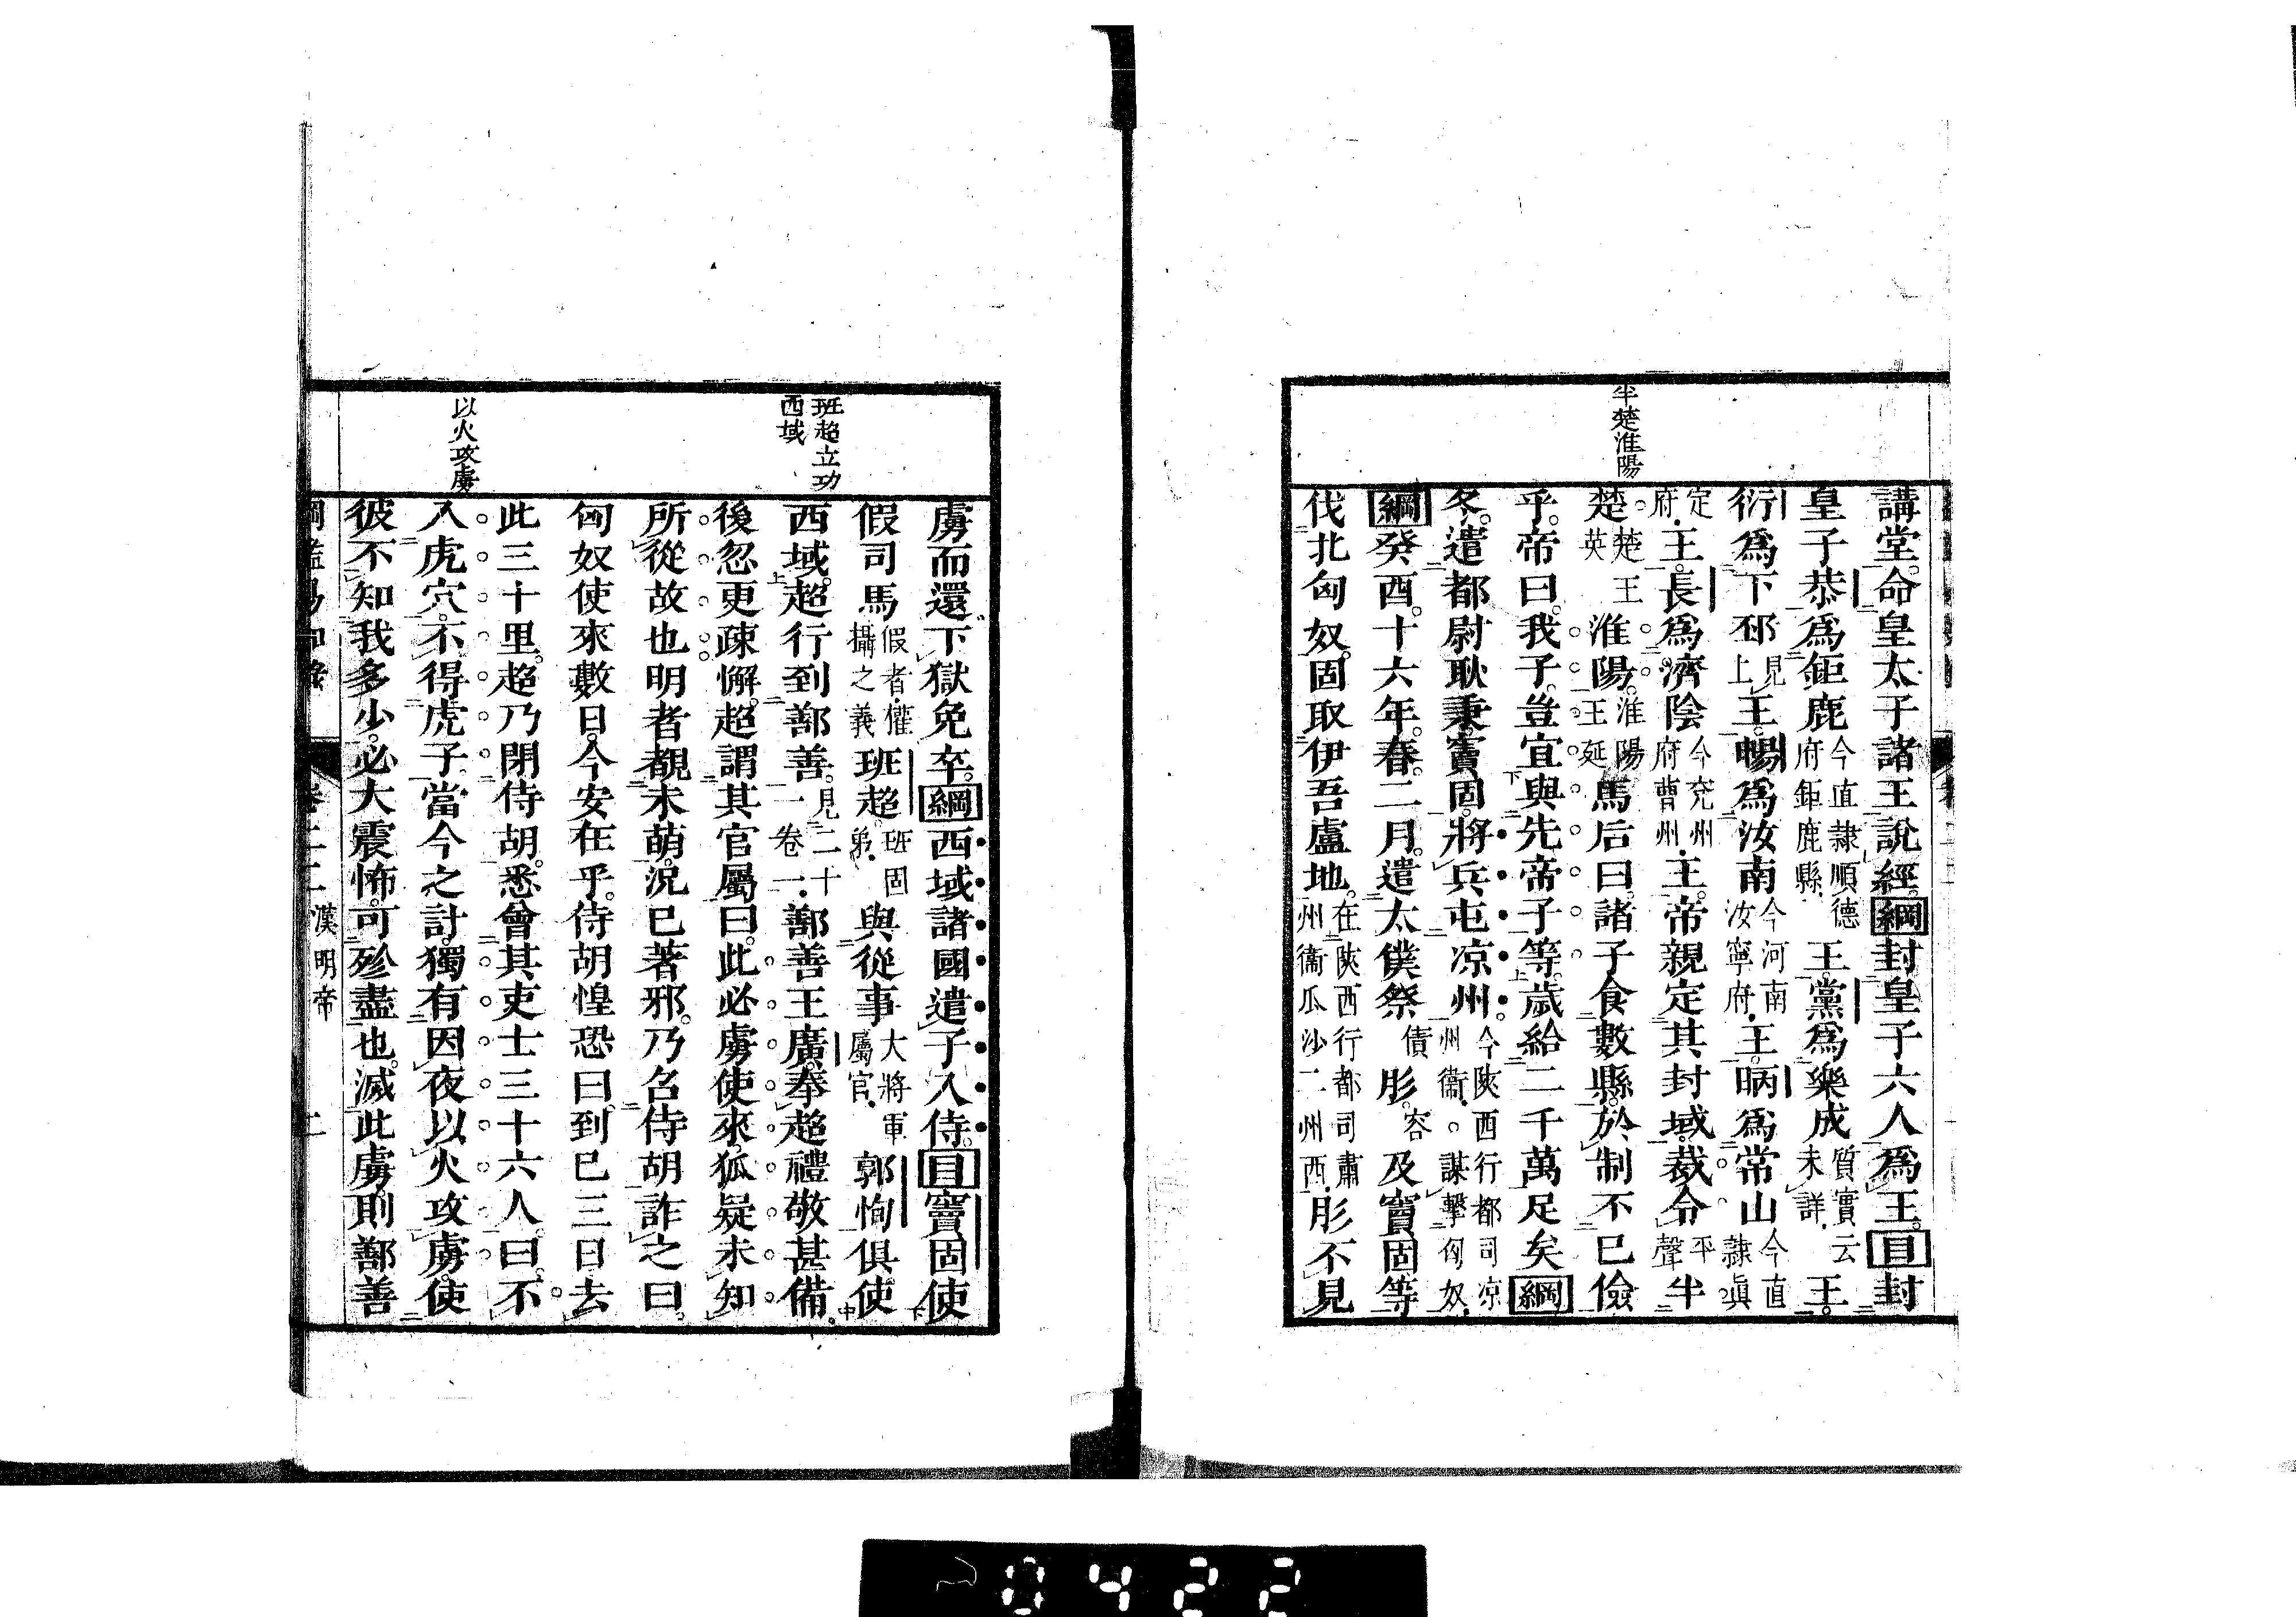 半楚淮陽
講堂。命皇太子諸王說經。綱封皇子六人爲王。目封
皇子恭爲鉅鹿今直隷順德府鉅鹿縣.王。黨爲樂成質實云未詳.王。
衍爲下邳見上王。暢爲汝南今河南汝寧府.王。昞爲常山今直隷眞
定府.王。長爲濟陰今兖州府曹州.王。帝親定其封域。裁令平聲半
楚。楚王英淮陽。淮陽王延馬后曰。諸子食數縣。於制不已儉
乎。帝曰。我子。豈宜與先帝子等。歲給二千萬足矣綱
冬。遣都尉耿秉。竇固。將兵屯凉州。今陝西行都司凉州衞.。謀擊匈奴.
綱癸酉。十六年。春。二月。遣太僕祭債肜。容及竇固等
伐北匈奴。固取伊吾盧地。在陝西行都司肅州衞瓜沙二州西.肜不見
班超立功
西域
以火攻虜
虜而還。下獄免卒。綱西域諸國遣子入侍。目竇固使
假司馬假者.僅攝之義班超。班固弟.與從事大將軍屬官.郭恂俱使
西域。超行到鄯善。見二十一卷一.鄯善王廣。奉超禮敬甚備。
後忽更疎懈。超謂其官屬曰。此必虜使來。狐疑未知
所從故也明者覩未萌。況已著邪。乃召侍胡詐之曰。
匈奴使來數日。今安在乎。侍胡惶恐曰。到已三日去
此三十里。超乃閉侍胡。悉會其吏士三十六人。曰。不
入虎穴。不得虎子。當今之計。獨有因夜以火攻虜。使
彼不知我多少。必大震怖。可殄盡也。滅此虜。則鄯善
漢明帝
0422